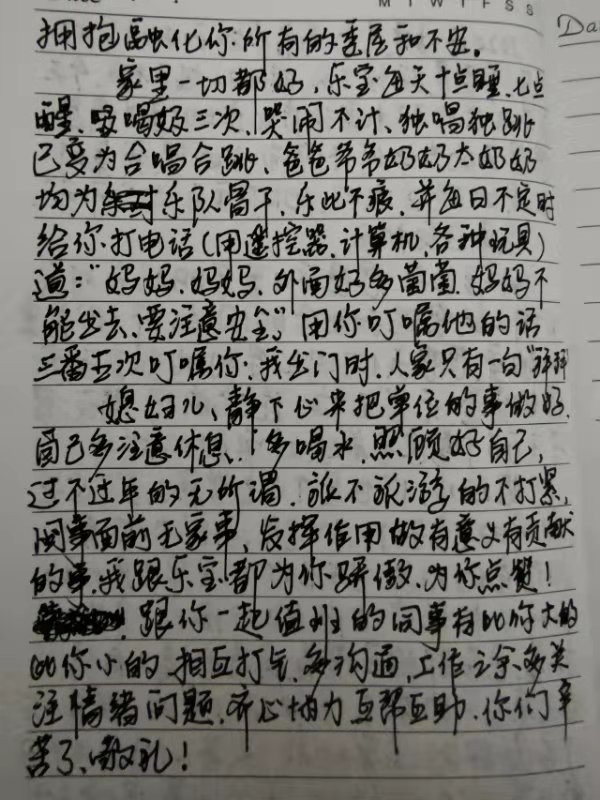 M T W T F S S
Da
拥抱融化你所有的委屈和不安。
家里一切都好，乐宝每天十点睡，七点
醒，喝奶三次，哭闹不计、独唱独跳
已变为合唱合跳、爸爸爷爷奶奶太奶奶
均为乐队骨干，乐此不疲，并每日不定时
给你打电话（用遥控器、计算机、各种玩具）
道：“妈妈、妈妈、外面好多菌菌，妈妈不
能出去、要注意安全。”用你叮嘱他的话
三番五次叮嘱你，我出门时，人家只有一句“拜拜
媳妇儿、静下心来把单位的事做好，
自己多注意休息、多喝水，照顾好自己，
过不过年的无所谓，旅不旅游的不打紧，
国事面前无家事，发挥作用做有意义有贡献
的事，我跟乐宝都为你骄傲，为你点赞！
跟你一起值班的同事有比你大的
比你小的，相互打气，多沟通，工作之余多关
注情绪问题，齐心协力互帮互助，你们辛
苦了、敬礼！